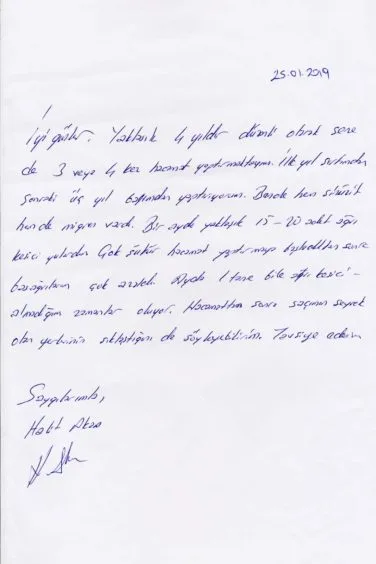 25.01.2019
İyi günler. Yaklaşık 4 yıldır düzenli olarak sene
de 3 veya 4 kez hacamat yaptırmaktayım. İlk yıl sırtımdan
sonraki üç yıl başımdan yaptırıyorum. Bende hem sinüzit
hem de migren vardı. Bir ayda yaklaşık 15-20 adet ağrı
kesici yutardım Çok şükür hacamat yaptırmaya başladıktan sonra
başağrılarım çok azaldı. Ayda 1 tane bile ağrı kesici
almadığım zamanlar oluyor. Hacamattan sonra saçımın seyrek
olan yerlerinin sıklaştığını da söyleyebilirim. Tavsiye ederim
Saygılarımla,
Halit